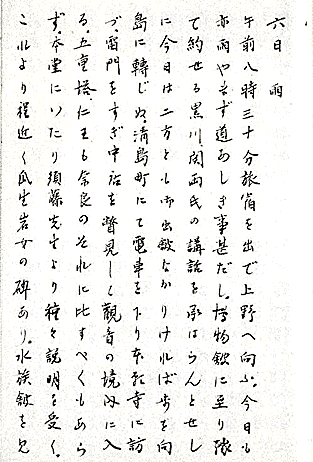 六日　雨
午前八時三十分旅宿を出で上野へ向ふ。今日も
亦雨やまず道あしき事甚だし。博物館に至り隊
て約せる黒川、関両氏の講話を承はらんとせし
に今日は二方とも御出勤なかりければ歩を向
島に転じぬ。清島町にて電車を下り本願寺に訪
づ、雷門をすぎ中店を瞥見しく観音の境内に入
る。五重塔、仁王も奈良のそれに比すべくもあら
ず。本堂にいたり須藤先生より種々説明を受く。
これより程近く瓜生岩女の碑あり。水族館を見